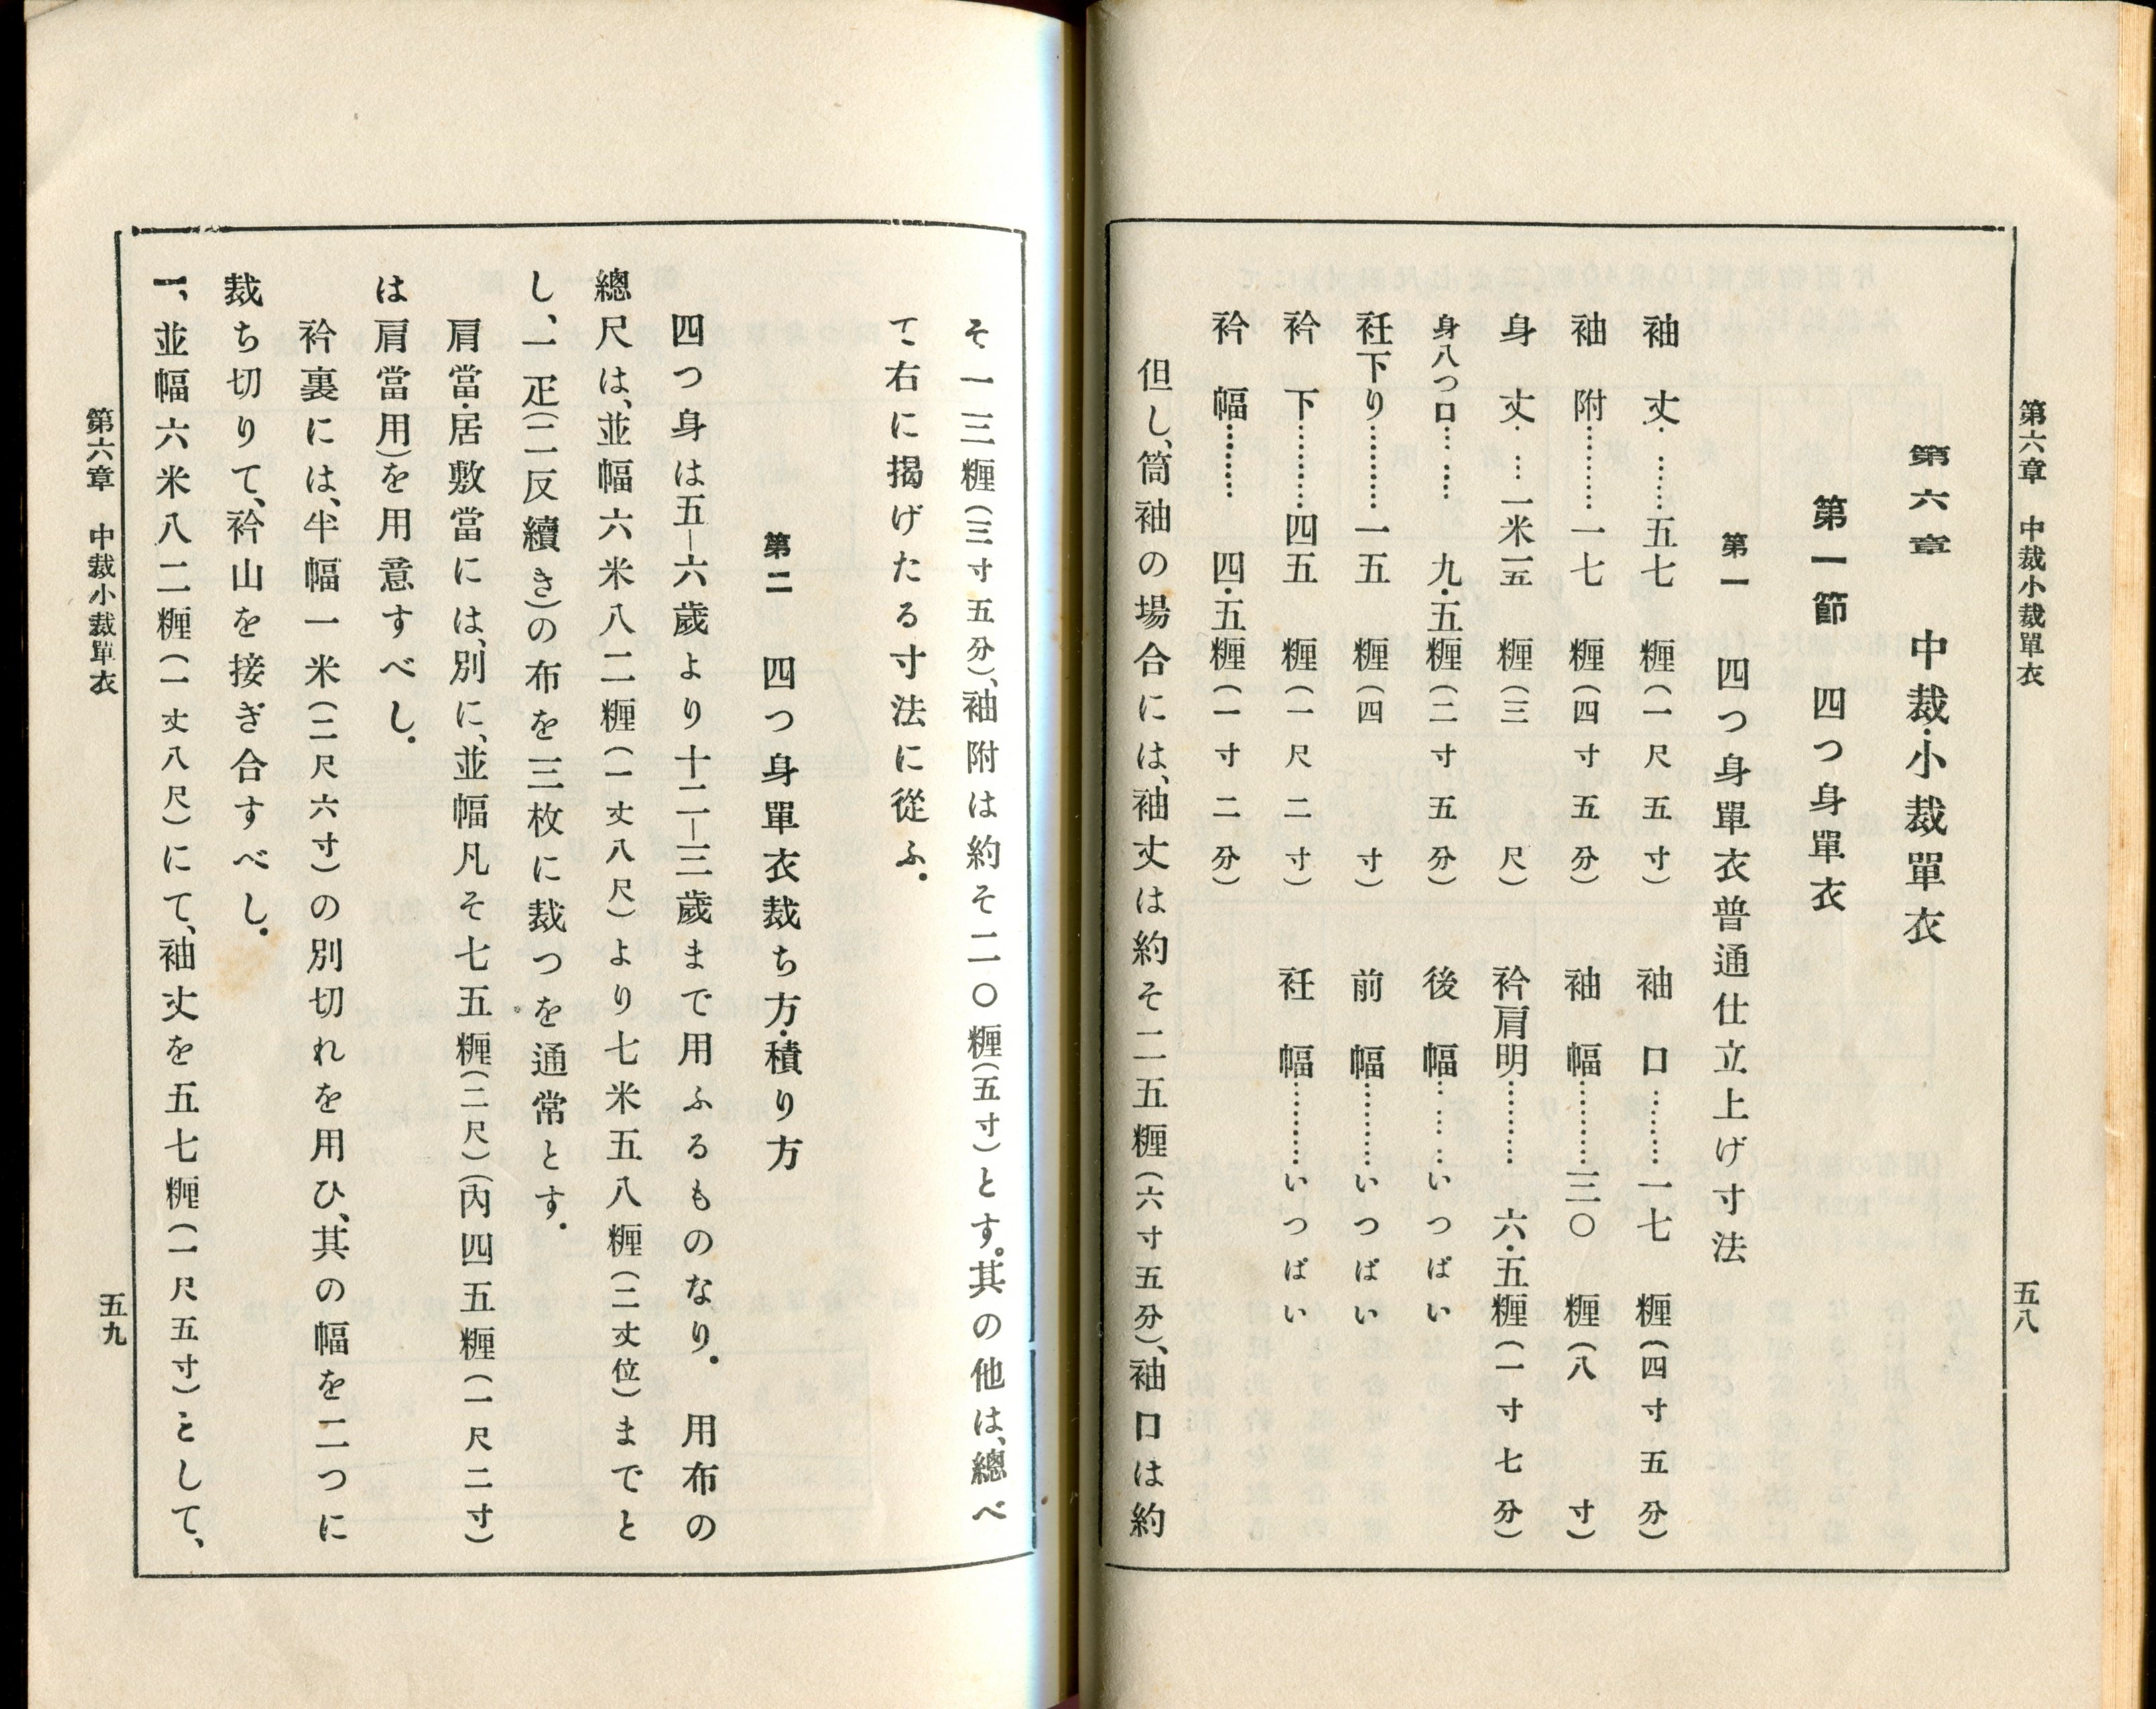 第六章　中裁小裁單衣
五八
第六章　中裁・小裁單衣
第一節　四つ身單衣
第一　四つ身單衣普通仕立上げ寸法
袖丈………五七糎(一尺五寸)　袖口………一七糎(四寸五分)
袖附………一七糎(四寸五分)　袖幅………三〇糎(八寸)
身丈……一米一五糎(三尺)　衿肩明………六・五糎(一寸七分)
身八つ口………九・五糎(二寸五分)　後幅………いつぱい
衽下り………一五糎(四寸)　前幅………いつぱい
衿下………四五糎(一尺二寸)　衽幅………いつぱい
衿幅………四・五糎(一寸二分)
但し、筒袖の場合には、袖丈は約そ二五糎(六寸五分)、袖口は約
そ一三糎(三寸五分)、袖附は約そ二〇糎(五寸)とす。其の他は、總べ
て右に揭げたる寸法に從ふ。
第二　四つ身單衣裁ち方・積り方
四つ身は五―六歲より十二―三歲まで用ふるものなり。用布の
總尺は、並幅六米八二糎(一丈八尺)より七米五八糎(二丈位)までと
し、一疋(二反續き)の布を三枚に裁つを通常とす。
肩當・居敷當には、別に、並幅凡そ七五糎(二尺)(內四五糎(一尺二寸)
は肩當用)を用意すべし。
衿裏には、半幅一米(二尺六寸)の別切れを用ひ、其の幅を二つに
裁ち切りて、衿山を接ぎ合すべし。
一、並幅六米八二糎(一丈八尺)にて、袖丈を五七糎(一尺五寸)として、
第六章　中裁小裁單衣
五九